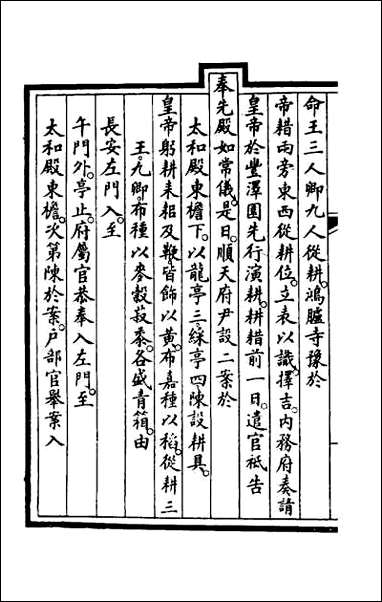 命王三人卿九人從耕。鴻臚寺豫於
帝耤兩旁東西從耕位。立表以識。擇吉。内務府奏請
皇帝於豐澤園先行演耕。耕耤前一日。遣官祗告
奉先殿如常儀。是日。順天府尹設二案於
太和殿東檐下。以龍亭三。綵亭四。陳設耕具。
皇帝躬耕耒耜及鞭。皆飾以黃。布嘉種以稻。從耕三
王。九卿。布種以麥穀菽黍。各盛青箱。由
長安左門入。至
午門外。亭止。府屬官恭奉入左門。至
太和殿東檐。次第陳於案。戶部官舉案入